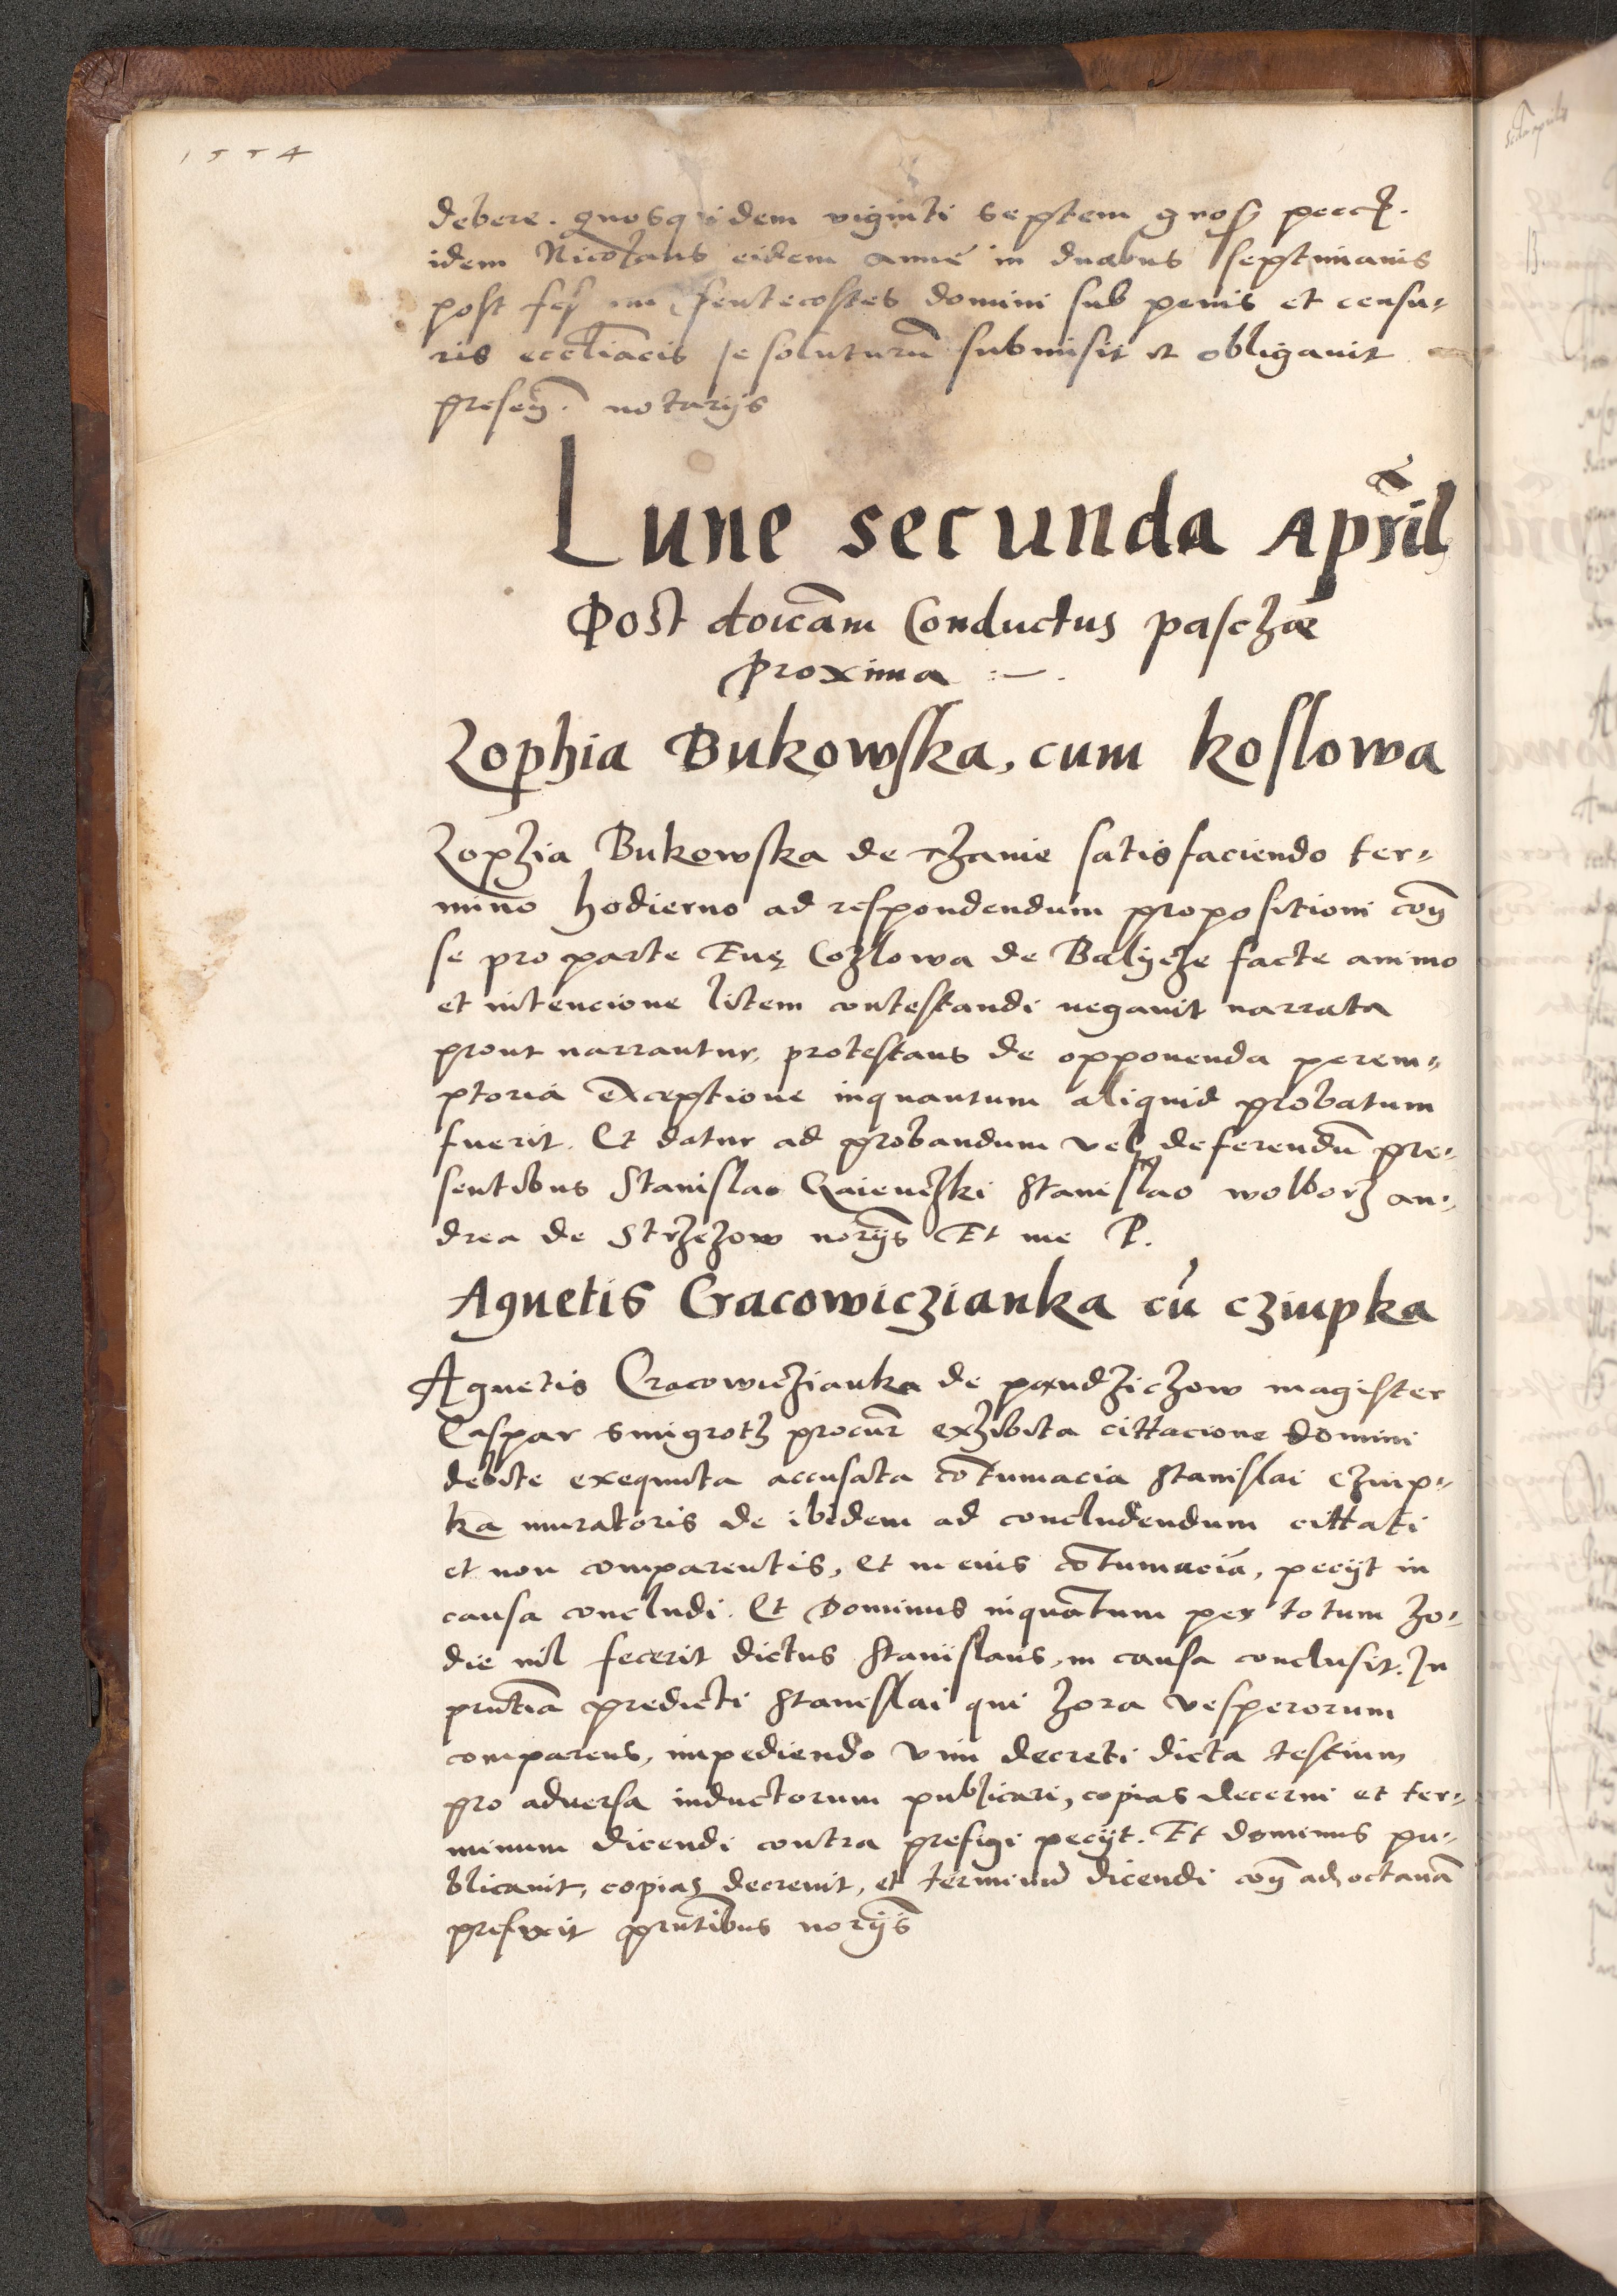 1554
debere. quosquidem viginti septem gross
idem Nicolaus eidem anne in duabus septimanis
post fes um pentecostes domini sub penis et censu-
ris eccliacis se soluturū submisit et obligavit
presen. notarijs
Lune secunda April
Post doicam Conductus paschae
proxima
Zophia Bukowska, cum koslowa
Zophia Bukowska de satisfaciendo ter-
mino hodierno ad respondendum propositioni con
se pro parte Eve Cozlowa de Balycze facte animo
et intencione litem contestandi negavit narrata
prout narrantur, protestans de opponenda perem-
ptoria exceptione inquantum aliquid probatum
fuerit. Et datur ad probandum vel deferendū pre-
sentibus Stanislao Stanislao wolborz an-
drea de Strzezow norijs Et me P.
Agnetis Cracowiczianka cū cziupka
Agnetis Cracowiczianka de magister
Caspar smigrotz procur exhibita cittacione domini
debite exequuta accusata cōtumacia Stanislai cziup-
ka muratoris de ibidem ad concludendum cittati
et non comparentis, et in eius cōtumaciā, pecijt in
causa concludi. Et Dominus inquātum per totum ho-
die nil fecerit dictus Stanislaus, in causa conclusit. In
pn̄tia predicti Stanislai qui hora vesperorum
comparens, impediendo vim decreti dicta testium
pro adversa inductorum publicari, copias decerni et ter-
minum dicendi contra prefigi pecijt. Et dominus pu-
blicavit, copias decrevit, et terminū dicendi con ad octavā
prefixit pn̄tibus norijs